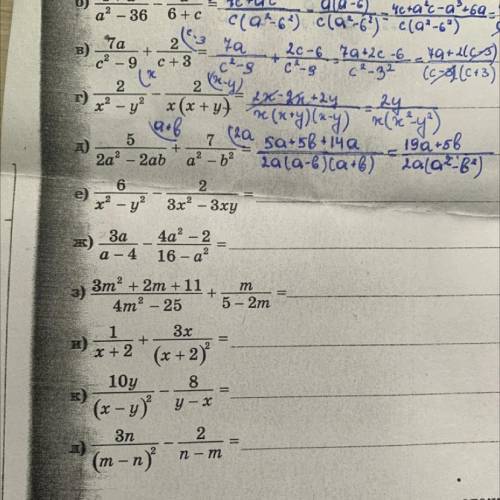 б) a² − 36 − 6 + c = c(a² − 6²) = c(a² − 6²) = c(a² − 6²)
в) 7a/(c² − 9) + 2/(c + 3) (c-3 = 7a/(c² − 9) + (2c − 6)/(c² − 9) = (7a + 2c − 6)/(c² − 3²) = (7a + 2(c − 3))/((c − 3)(c + 3))
г) 2/(x² − y²) (x − 2/(x(x + y)) (x-y) = (2x − 2x + 2y)/(x(x + y)(x − y)) = 2y/(x(x² − y²))
д) 5/(2a² − 2ab) (a+b + 7/(a² − b²) (2a = (5a + 5b + 14a)/(2a(a − b)(a + b)) = (19a + 5b)/(2a(a² − b²))
е) 6/(x² − y²) − 2/(3x² − 3xy) =
ж) 3a/(a − 4) − (4a² − 2)/(16 − a²) =
з) (3m² + 2m + 11)/(4m² − 25) + m/(5 − 2m) =
и) 1/(x + 2) + 3x/(x + 2)² =
к) 10y/(x − y)² − 8/(y − x) =
л) 3n/(m − n)² − 2/(n − m) =